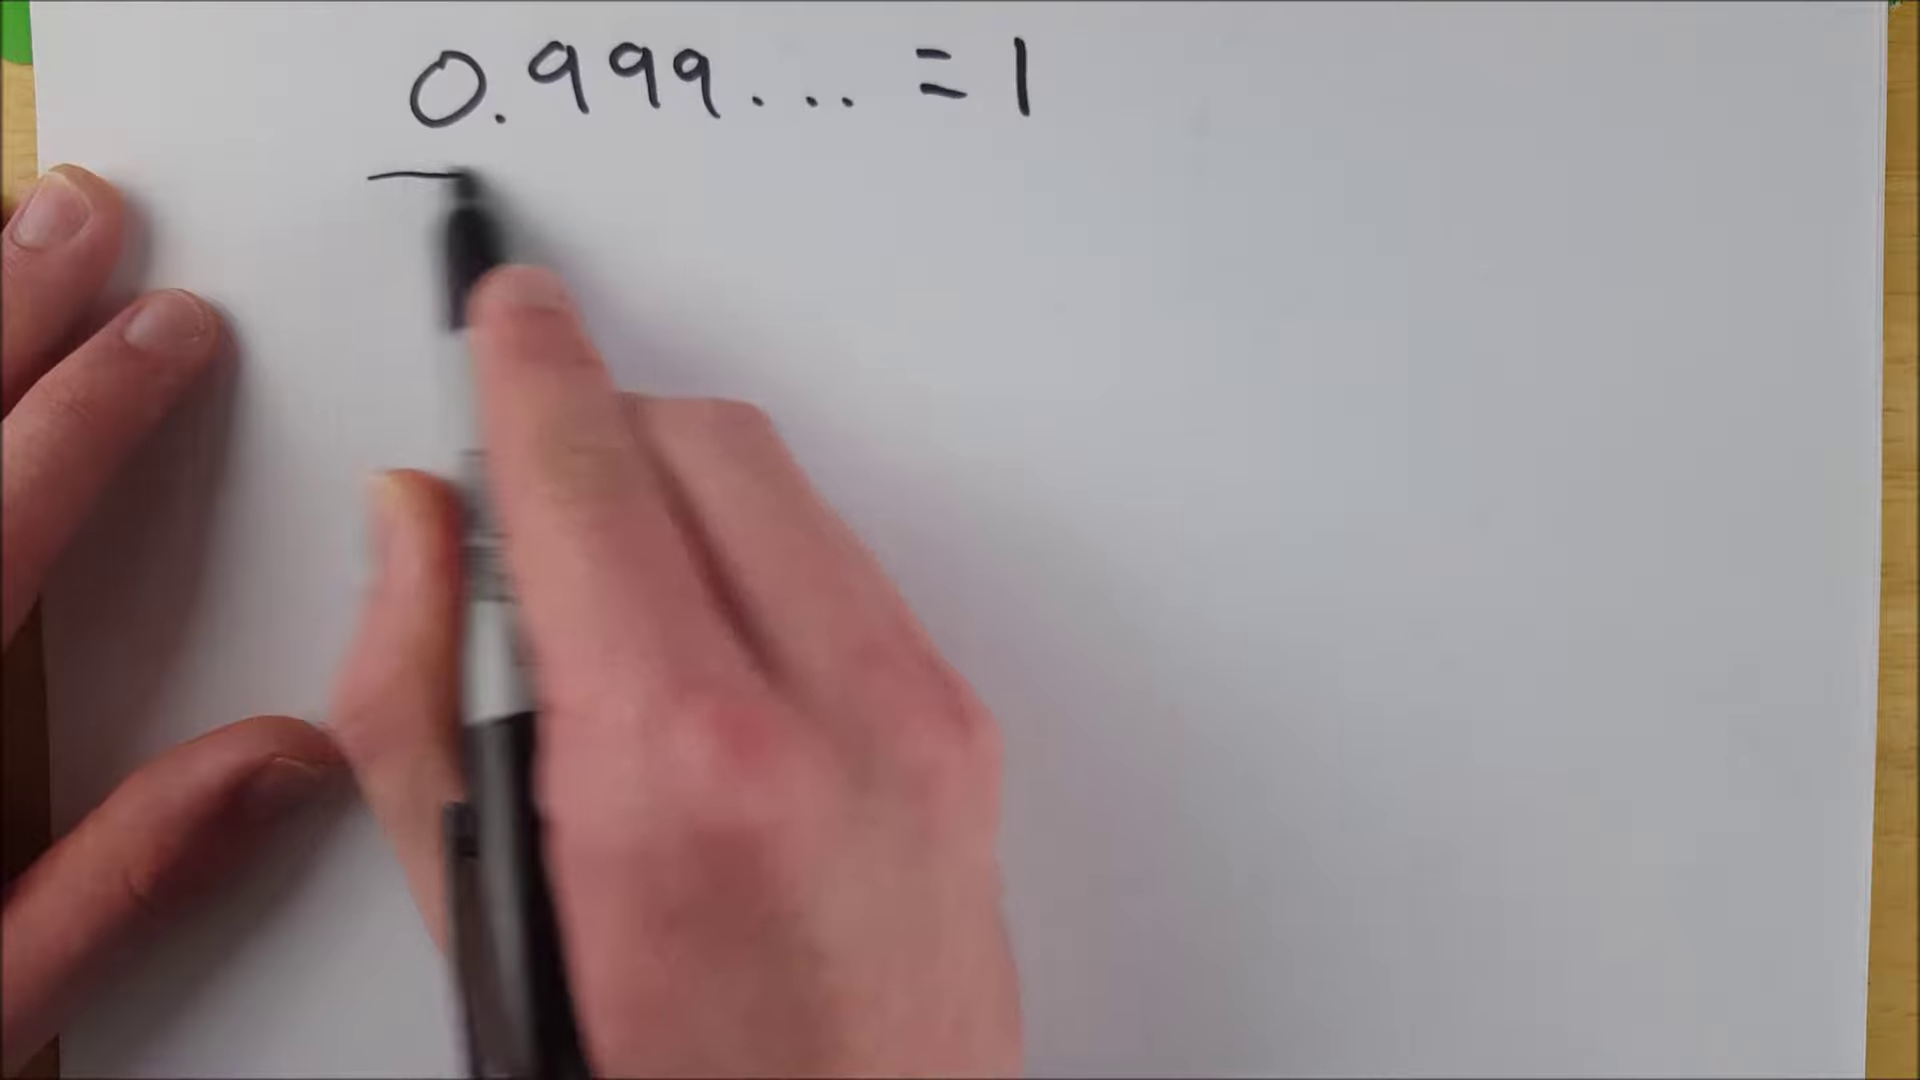 0.999... = 1